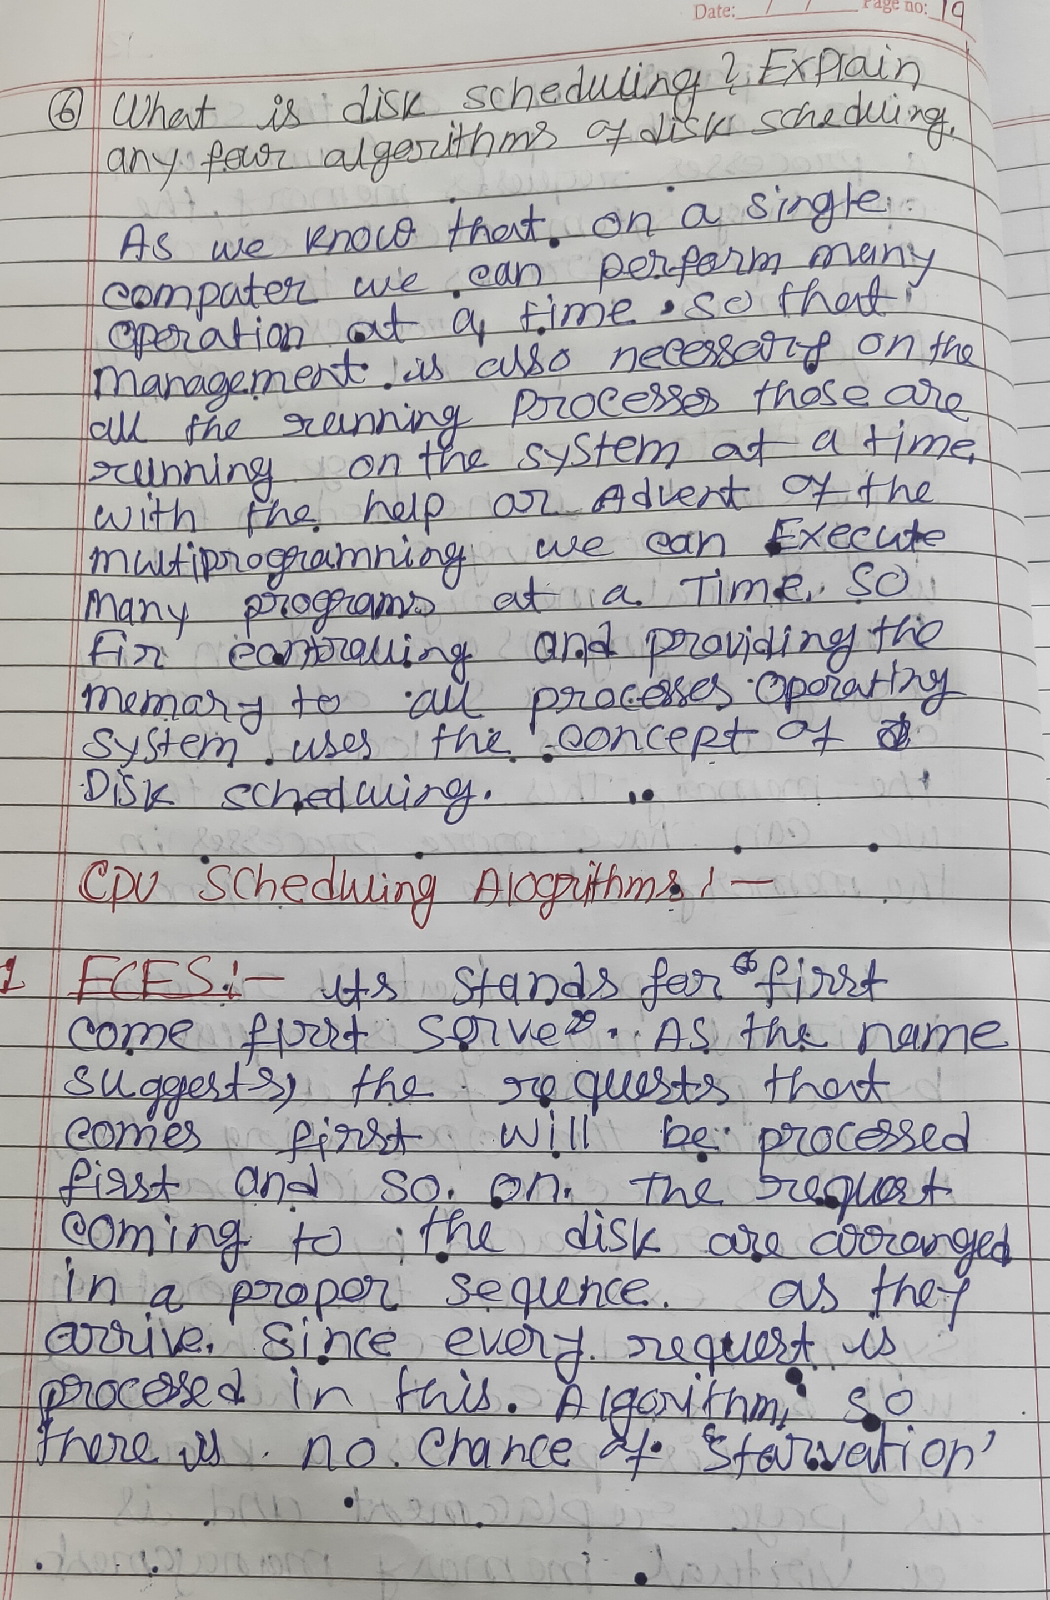 Date: / / Page no: 19
⑥ What is disk scheduling? Explain
any four algorithms of disk scheduling.
As we know that. on a single
computer we can perform many
operation at a time. so that
management is also necessary on the
all the running processes those are
running on the system at a time.
with the help or Advent of the
multiprogramming we can Execute
many programs at a Time. So
for controlling and providing the
memory to all processes operating
system uses the concept of
Disk scheduling.
CPU Scheduling Alogrithms :-
1 FCFS:- Its stands for "first
come first serve". As the name
suggests, the requests that
comes first will be processed
first and so on. The request
coming to the disk are arranged
in a proper sequence. as they
arrive. Since every request is
processed in this. Algorithm, so
there is no. chance of 'Starvation'